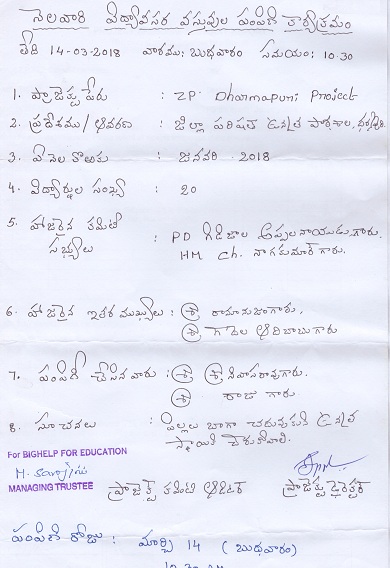 నెలవారి విద్యావసర వస్తువుల పంపిణి కార్యక్రమం
తేది 14-03-2018 వారము: బుధవారం సమయం: 10.30
1. ప్రాజెక్టు పేరు : ZP Dharmapuri Project
2. ప్రదేశము / ఆవరణ : జిల్లా పరిషత్ ఉన్నత పాఠశాల,
3. ఏ నెల కొరకు : జనవరి 2018
4. విద్యార్థుల సంఖ్య : 20
5. హాజరైన కమిటీ సభ్యులు : PD గిడిజాల అప్పలనాయుడు గారు.
HM Ch. నాగకుమార్ గారు.
6. హాజరైన ఇతర ముఖ్యులు : శ్రీ రామానుజం గారు.
శ్రీ గాదెల ఆదిబాబు గారు
7. పంపిణి చేసిన వారు : శ్రీ శ్రీనివాసరావు గారు.
శ్రీ రాజు గారు
8. సూచనలు : పిల్లలు బాగా చదువుకుని ఉన్నత
స్థాయికి చేరుకోవాలి.
For BIGHELP FOR EDUCATION
M. Sarojini
MANAGING TRUSTEE
ప్రాజెక్ట్ కమిటి ఆడిటర్ ప్రాజెక్టు డైరెక్టర్
పంపిణి రోజు : మార్చి 14 (బుధవారం)